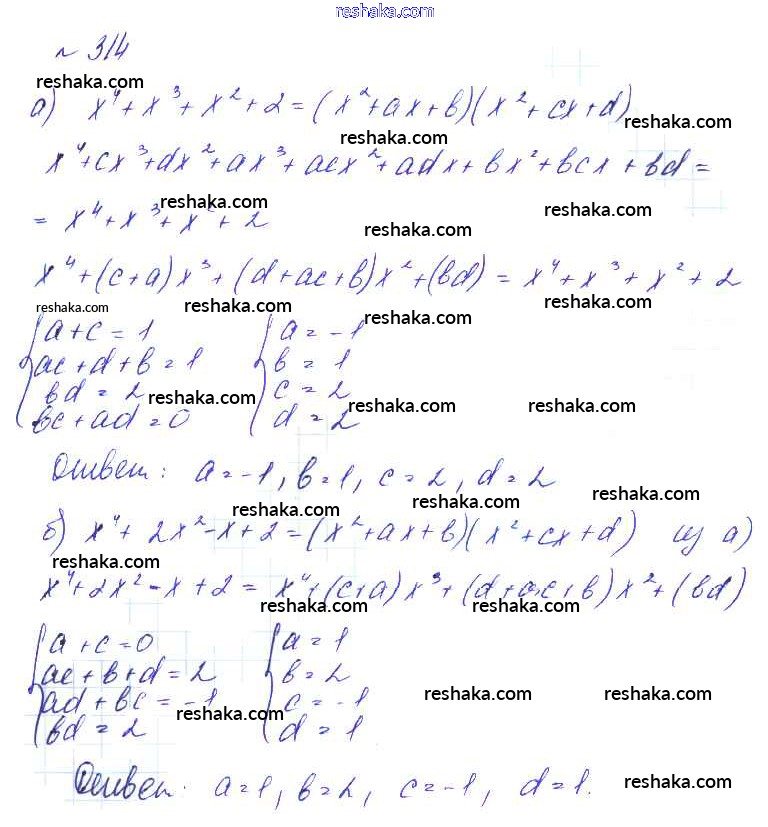 reshaka.com
№ 314
reshaka.com reshaka.com
а) x⁴ + x³ + x² + 2 = (x² + ax + b)(x² + cx + d)
reshaka.com reshaka.com
x⁴ + cx³ + dx² + ax³ + acx² + adx + bx² + bcx + bd =
reshaka.com reshaka.com
= x⁴ + x³ + x² + 2
reshaka.com
x⁴ + (c + a)x³ + (d + ac + b)x² + (bd) = x⁴ + x³ + x² + 2
reshaka.com reshaka.com reshaka.com reshaka.com
{ a + c = 1 { a = -1
ac + d + b = 1 b = 1
bd = 2 c = 2
reshaka.com reshaka.com reshaka.com
bc + ad = 0 d = 2
Ответ: a = -1, b = 1, c = 2, d = 2
reshaka.com reshaka.com reshaka.com
б) x⁴ + 2x² - x + 2 = (x² + ax + b)(x² + cx + d) из а)
reshaka.com
x⁴ + 2x² - x + 2 = x⁴ + (c + a)x³ + (d + ac + b)x² + (bd)
reshaka.com reshaka.com
{ a + c = 0 { a = 1
ac + b + d = 2 b = 2
ad + bc = -1 c = -1
reshaka.com reshaka.com reshaka.com
bd = 2 d = 1
Ответ: a = 1, b = 2, c = -1, d = 1.
reshaka.com